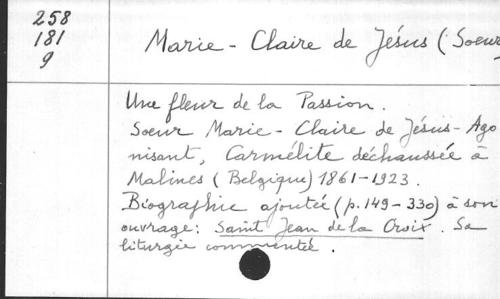 258
181
9
Marie-Claire de Jésus (Soeur
Une fleur de la Passion.
Soeur Marie-Claire de Jésus-Ago
nisant, Carmélite déchaussée à
Malines (Belgique) 1861-1923.
Biographie ajoutée (p.149-330) à son
ouvrage: Saint Jean de la Croix. Sa
liturgie commentée.